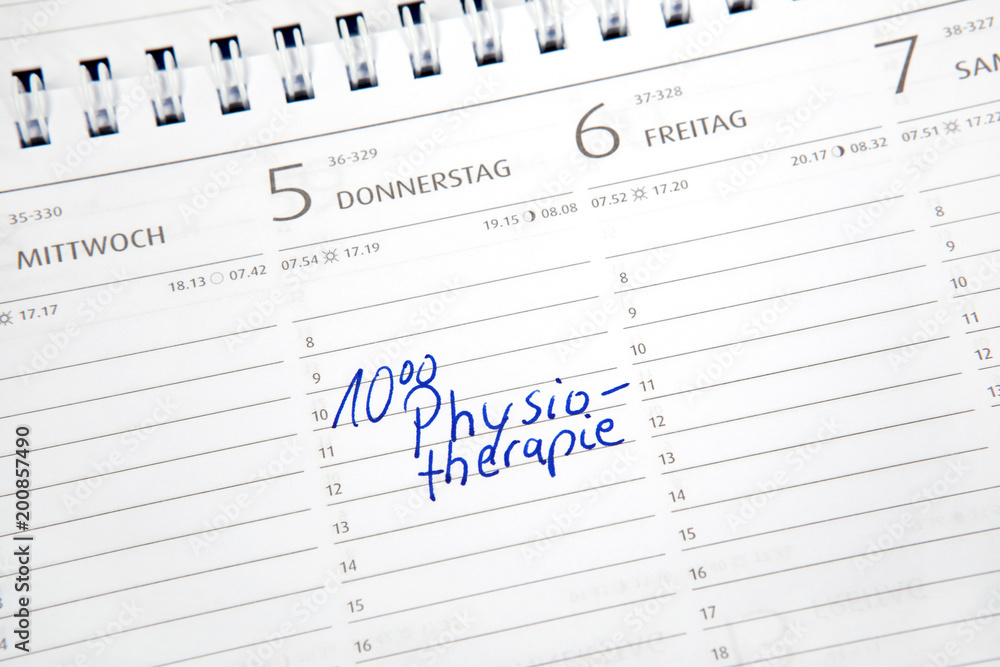 35-330
MITTWOCH
17.17
18.13 07.42
5
36-329
DONNERSTAG
07.54 17.19
19.15 08.08
6
37-328
FREITAG
07.52 17.20
20.17 08.32
7
38-327
SAM
07.51 17.22
8
9
10
11
12
13
14
15
16
10⁰⁰ Physio-
therapie
8
9
10
11
12
13
14
15
16
17
18
8
9
10
11
12
13
Adobe Stock | #200857490